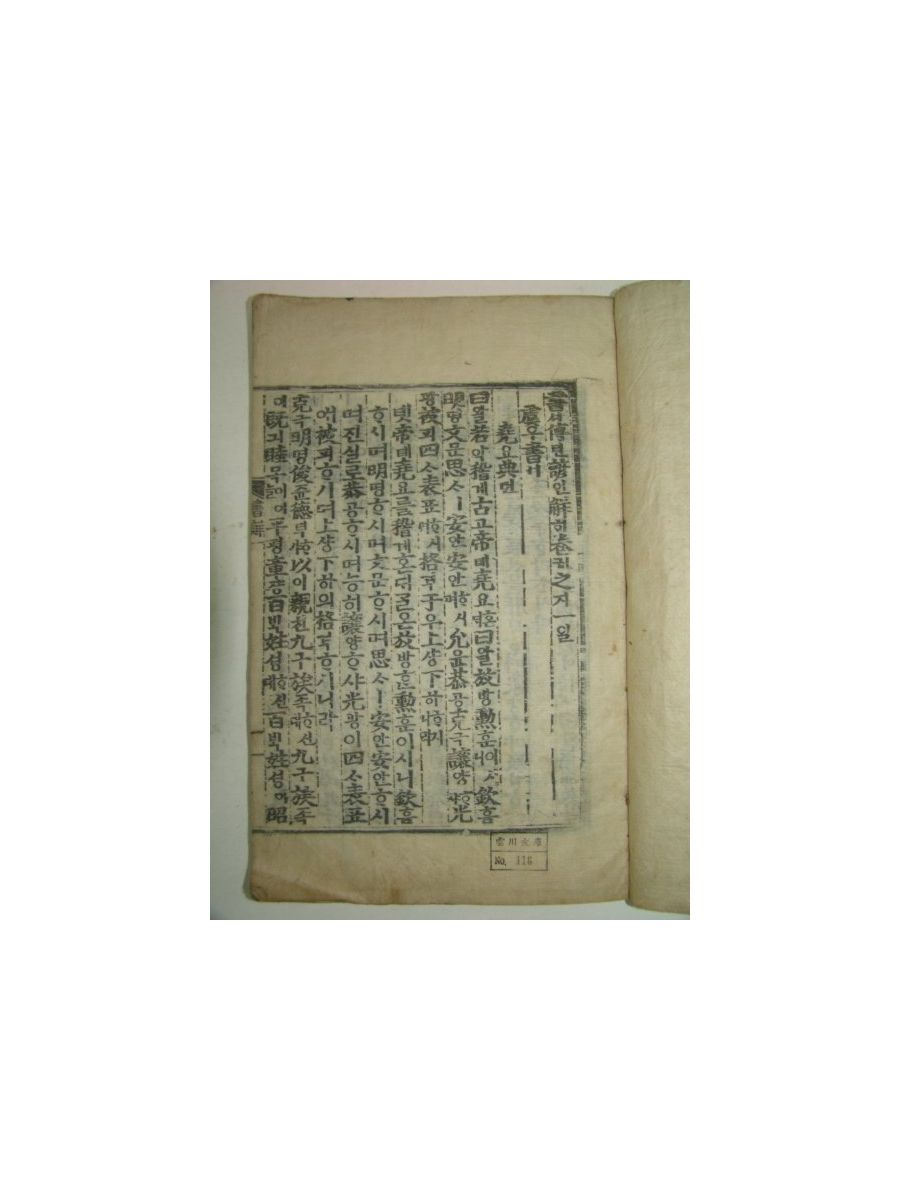 書셔傳뎐諺언解ᄒᆡ卷권之지一일
虞우書셔
堯요典뎐
曰왈若약稽계古고帝뎨堯요ᄒᆞᆫᄃᆡ曰왈放방勳훈이시니欽흠
明명文문思ᄉᆞㅣ安안安안ᄒᆞ시며允윤恭공克극讓양ᄒᆞ샤光
광被피四ᄉᆞ表표ᄒᆞ시며格격于우上샹下하ᄒᆞ시니라
녯帝뎨堯요ᄅᆞᆯ稽계혼ᄃᆡᄀᆞᆯ온放방ᄒᆞᆫ勳훈이시니欽흠
ᄒᆞ시며明명ᄒᆞ시며文문ᄒᆞ시며思ᄉᆞㅣ安안安안ᄒᆞ시
며진실로恭공ᄒᆞ시며능히讓양ᄒᆞ샤光광이四ᄉᆞ表표
에被피ᄒᆞ시며上샹下하의格격ᄒᆞ시니라
克극明명俊쥰德덕ᄒᆞ샤以이親친九구族족ᄒᆞ신대九구族족
이旣긔睦목이어늘平평章쟝百ᄇᆡᆨ姓셩ᄒᆞ신대百ᄇᆡᆨ姓셩이昭
書解 一
雲川文庫
No. 116